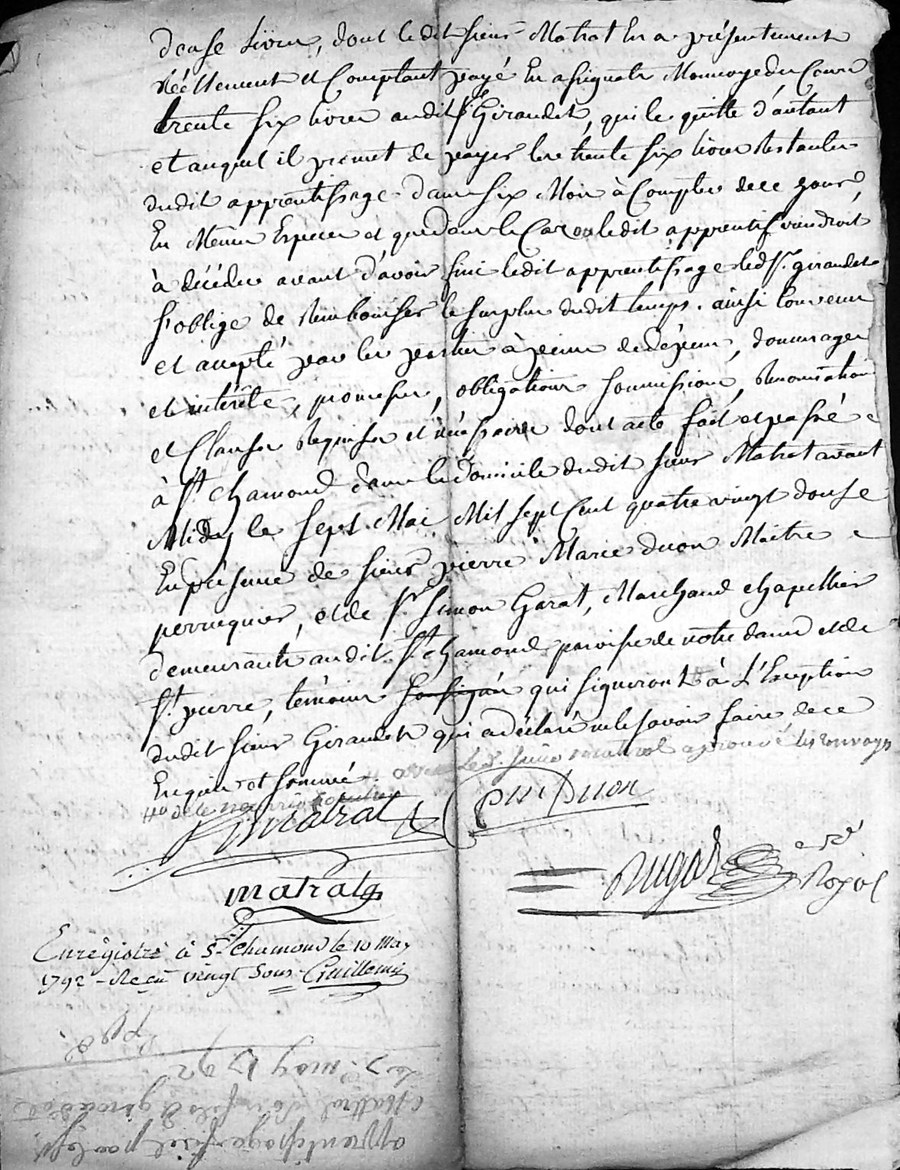 douse livres, dont ledit sieur Matrat en a présentement
réellement et Comptant payé En assignats Monnoye du Cours
trente six livres audit Sr. Giraudet, qui le quitte d'autant
et auquel il promet de payer les trente six livres restantes
dudit apprentissage dans six Mois à Compter de ce jour,
En Mêmes Especes et que dans le Cas ou ledit apprentif viendroit
à décéder avant d'avoir fini ledit apprentissage led. Sr. giraudet
s'oblige de Rembourser le surplus dudit temps. ainsi Convenu
et accepté par les parties à peine de dépens, dommages
et intérêts, promesses, obligations soumissions, Renonciations
et Clauses Requises et nécessaires dont acte fait et passé
à St. chamond dans le domicile dudit sieur Matrat avant
Midy le sept Mai Mil sept Cent quatre vingt douse
En présence de sieur pierre Marie duon Maitre
perruquier, et de Sr. Simon Garat, Marchand chapellier
demeurants audit St. chamond paroisses de notre dame et de
St. pierre, témoins soussignés qui signeront à L'Exception
dudit sieur Giraudet qui a déclaré ne le savoir faire, de ce
Enquis et sommé
Sr. matrat aprouvé les renvoys
matrat
pre Duon
matrat
Royal
Enregistré à St. Chamond le 10 May
1792 - Reçu vingt sous Guillemin
7. may 1792
apprentissage